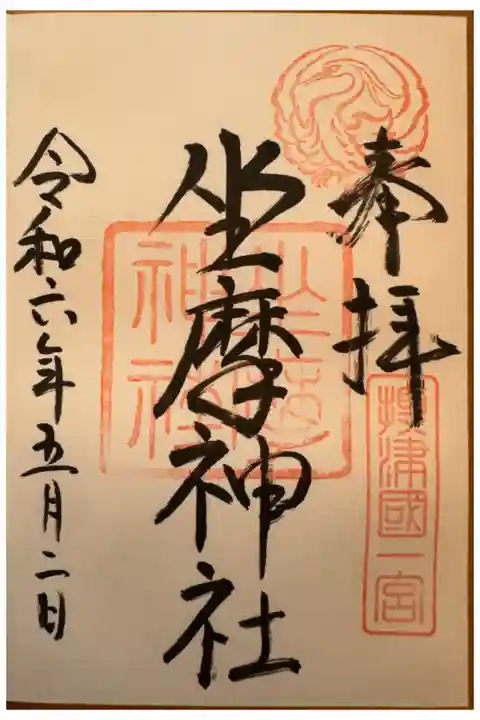 奉拝
攝津國一宮
坐摩神社
坐摩神社
令和六年五月二日